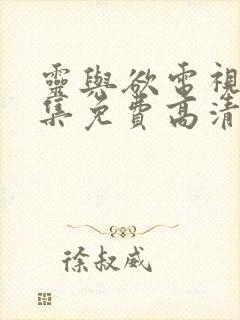 靈與欲電視
集免費高清
徐叔威